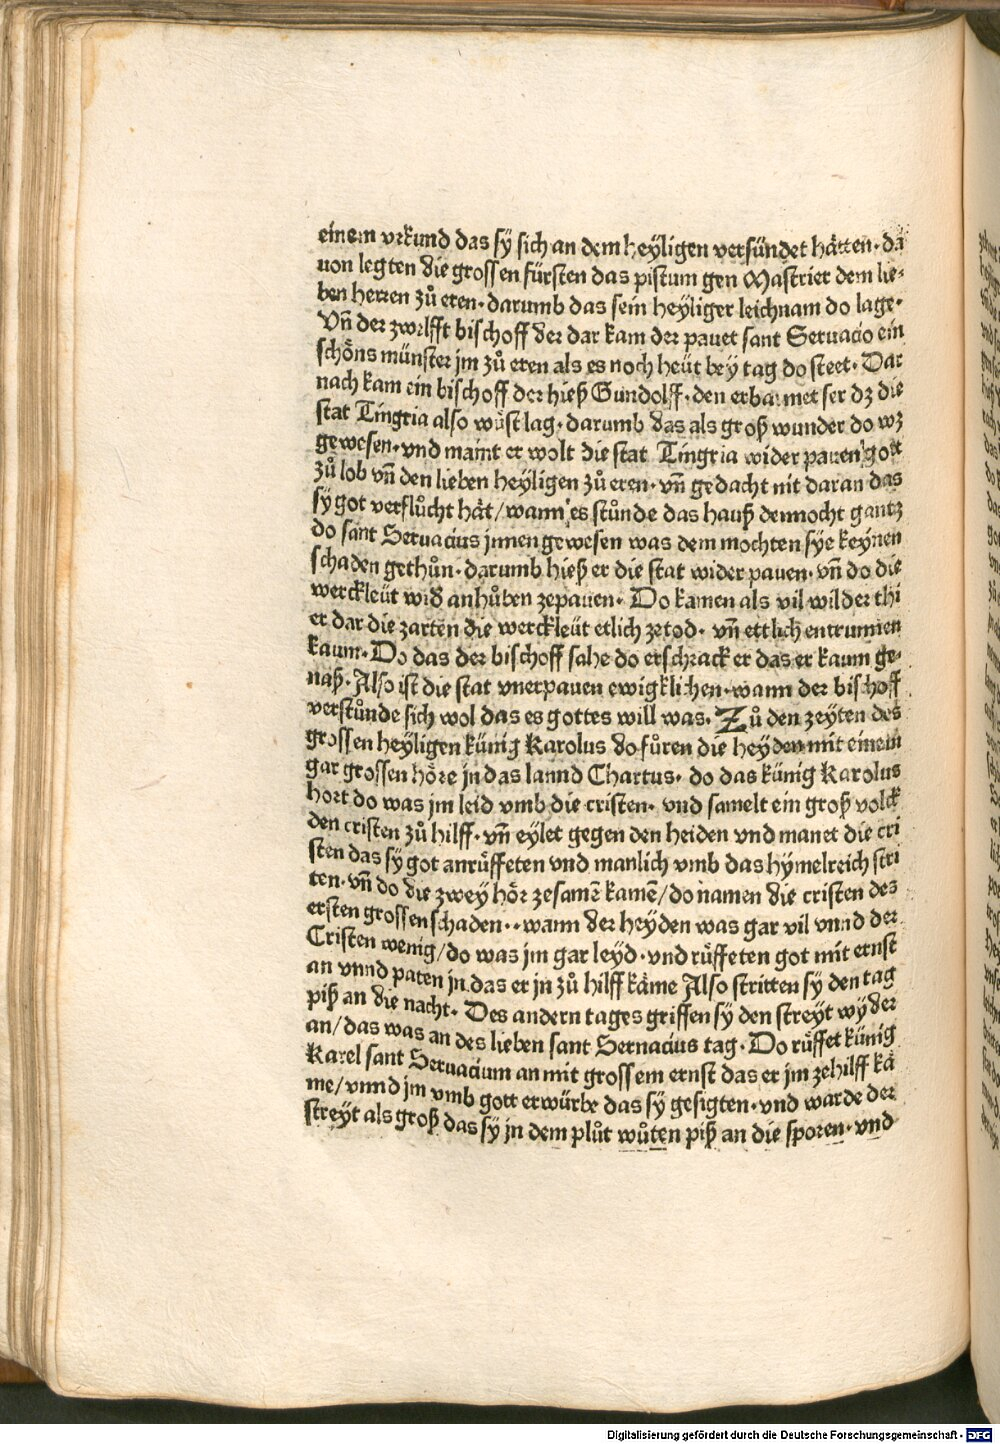 einem vrkund das sÿ sich an dem heÿligen versündet hätten· da
uon legten die grossen fürsten das pistum gen Mastriet dem lie⸗
ben herren zů eren· darumb das sein heÿliger leichnam do lage·
Vn̄ der zwelfft bischoff der dar kam der pauet sant Seruacio ein
schöns münster jm zů eren als es noch heüt beÿ tag do steet· Dar
nach kam ein bischoff der hieß Gundolff· den erbarmet ser dz die
stat Tingria also wüst lag· darumb das als groß wunder do wz
gewesen· vnd maint er wolt die stat Tingria wider pauen gott
zů lob vn̄ den lieben heÿligen zů eren· vn̄ gedacht nit daran das
sÿ got verflůcht hät/ wann es stůnde das hauß dennocht gantz
do sant Seruacius jnnen gewesen was dem mochten sÿe keÿnen
schaden gethůn· darumb hieß er die stat wider pauen· vn̄ do die
werckleüt wid anhůben zepauen· Do kamen als vil wilder thi
er dar die zarten die werckleüt etlich zetod· vn̄ ettlich entrunnen
kaum· Do das der bischoff sahe do erschrack er das er kaum ge⸗
naß· Also ist die stat vnerpauen ewigklichen· wann der bischoff
verstůnde sich wol das es gottes will was· Zů den zeÿten des
grossen heÿligen künig Karolus do fůren die heÿden mit einem
gar grossen höre jn das lannd Chartus· do das künig Karolus
hort do was jm leid vmb die cristen· vnd samelt ein groß volck
den cristen zů hilff· vn̄ eÿlet gegen den heiden vnd manet die cri
sten das sÿ got anrüffeten vnd manlich vmb das hÿmelreich stri
ten· vn̄ do die zweÿ hör zesamē kamē/ do namen die cristen des
ersten grossen schaden·· wann der heÿden was gar vil vnnd der
Cristen wenig/ do was jm gar leÿd· vnd rüffeten got mit ernst
an vnnd paten jn das er jn zů hilff käme Also stritten sÿ den tag
piß an die nacht· Des andern tages griffen sÿ den streÿt wÿder
an/ das was an des lieben sant Sernacius tag· Do rüffet künig
Karel sant Seruacium an mit grossem ernst das er jm zehilff kä
me/ vnnd jm vmb gott erwürbe das sÿ gesigten· vnd warde der
streÿt als groß das sÿ jn dem plůt wůten piß an die sporen· vnd
Digitalisierung gefördert durch die Deutsche Forschungsgemeinschaft - DFG